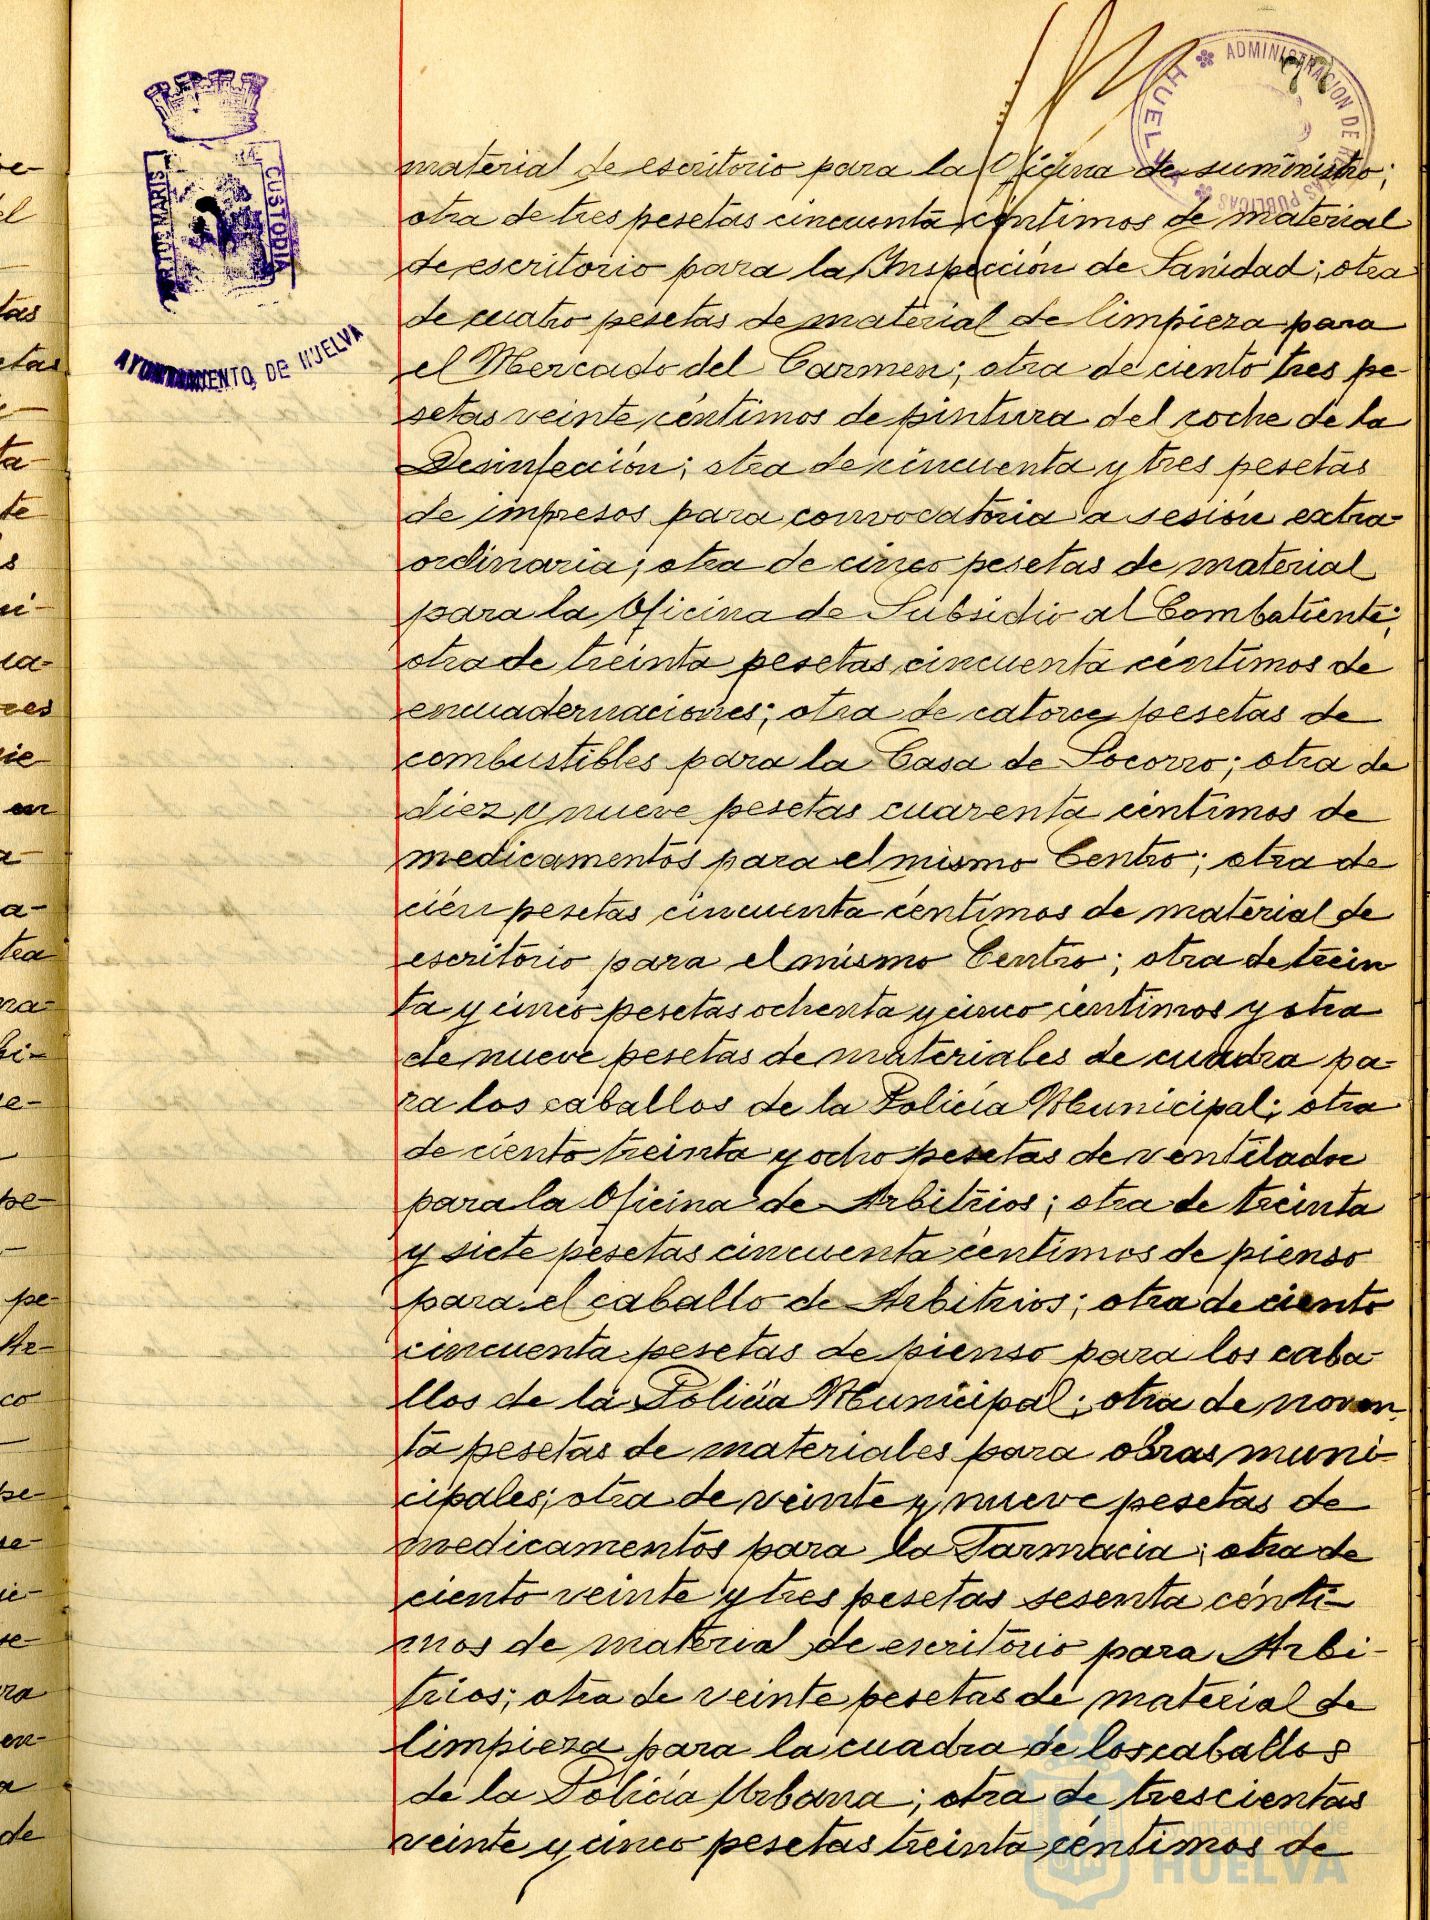 ADMINISTRACION DE RENTAS PUBLICAS
HUELVA
PORTUS MARIS
CUSTODIA
AYUNTAMIENTO DE HUELVA
material de escritorio para la Oficina de suministro;
otra de tres pesetas cincuenta céntimos de material
de escritorio para la Inspección de Sanidad; otra
de cuatro pesetas de material de limpieza para
el Mercado del Carmen; otra de ciento tres pe-
setas veinte céntimos de pintura del coche de la
Desinfección; otra de cincuenta y tres pesetas
de impresos para convocatoria a sesión extra-
ordinaria; otra de cinco pesetas de material
para la Oficina de Subsidio al Combatiente;
otra de treinta pesetas cincuenta céntimos de
encuadernaciones; otra de catorce pesetas de
combustibles para la Casa de Socorro; otra de
diez y nueve pesetas cuarenta céntimos de
medicamentos para el mismo Centro; otra de
cién pesetas cincuenta céntimos de material de
escritorio para el mismo Centro; otra de trein
ta y cinco pesetas ochenta y cinco céntimos y otra
de nueve pesetas de materiales de cuadra pa-
ra los caballos de la Policía Municipal; otra
de ciento treinta y ocho pesetas de ventilador
para la Oficina de Arbitrios; otra de treinta
y siete pesetas cincuenta céntimos de pienso
para el caballo de Arbitrios; otra de ciento
cincuenta pesetas de pienso para los caba-
llos de la Policía Municipal; otra de noven-
ta pesetas de materiales para obras muni-
cipales; otra de veinte y nueve pesetas de
medicamentos para la Farmacia; otra de
ciento veinte y tres pesetas sesenta cénti-
mos de material de escritorio para Arbi-
trios; otra de veinte pesetas de material de
limpieza para la cuadra de los caballos
de la Policía Urbana; otra de trescientas
veinte y cinco pesetas treinta céntimos de
Ayuntamiento de
HUELVA